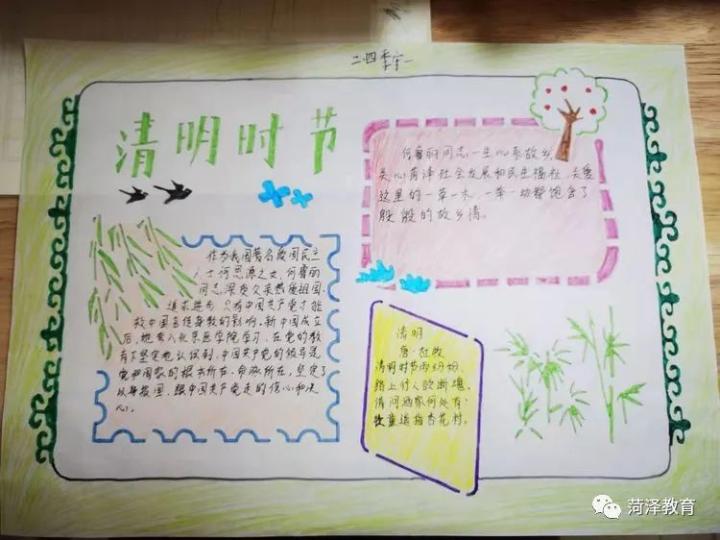 二.四 季宇一
清明时节
何鲁丽同志一生心系故乡,
关心菏泽社会发展和民生福祉,关爱
这里的一草一木,一举一动都饱含了
殷殷的故乡情。
作为我国著名爱国民主
人士何思源之女,何鲁丽
同志深受父亲热爱祖国、
追求进步、只有中国共产党才能
救中国等谆谆教诲的影响。新中国成立
后,她考入北京医学院学习,在党的教
育下坚定地认识到,中国共产党的领导是
党和国家的根本所在、命脉所在,坚定了
从医报国、跟中国共产党走的信心和决
心。
清明
唐·杜牧
清明时节雨纷纷,
路上行人欲断魂。
借问酒家何处有?
牧童遥指杏花村。
菏泽教育